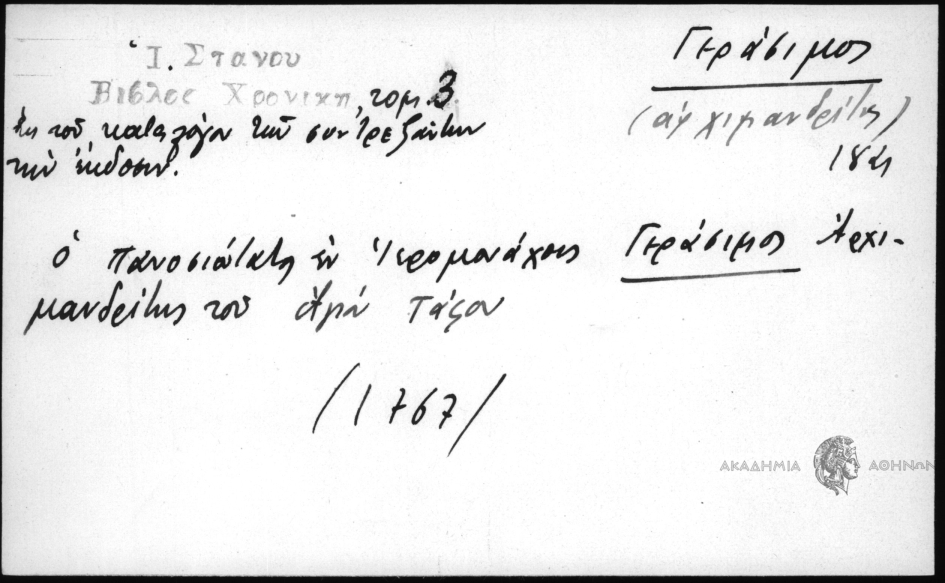 Ἰ. Στανου
Βιβλος Χρονικη, τομ. 3.
Ἐκ τοῦ καταλόγου τῶν συντρεξάντων
τὴν ἔκδοσιν.
Γεράσιμος
(ἀρχιμανδρίτης)
ὁ πανοσιώτατος ἐν Ἱερομονάχοις Γεράσιμος Ἀρχι-
μανδρίτης τοῦ Ἁγίου Τάφου
(1767)
ΑΚΑΔΗΜΙΑ ΑΘΗΝΩΝ